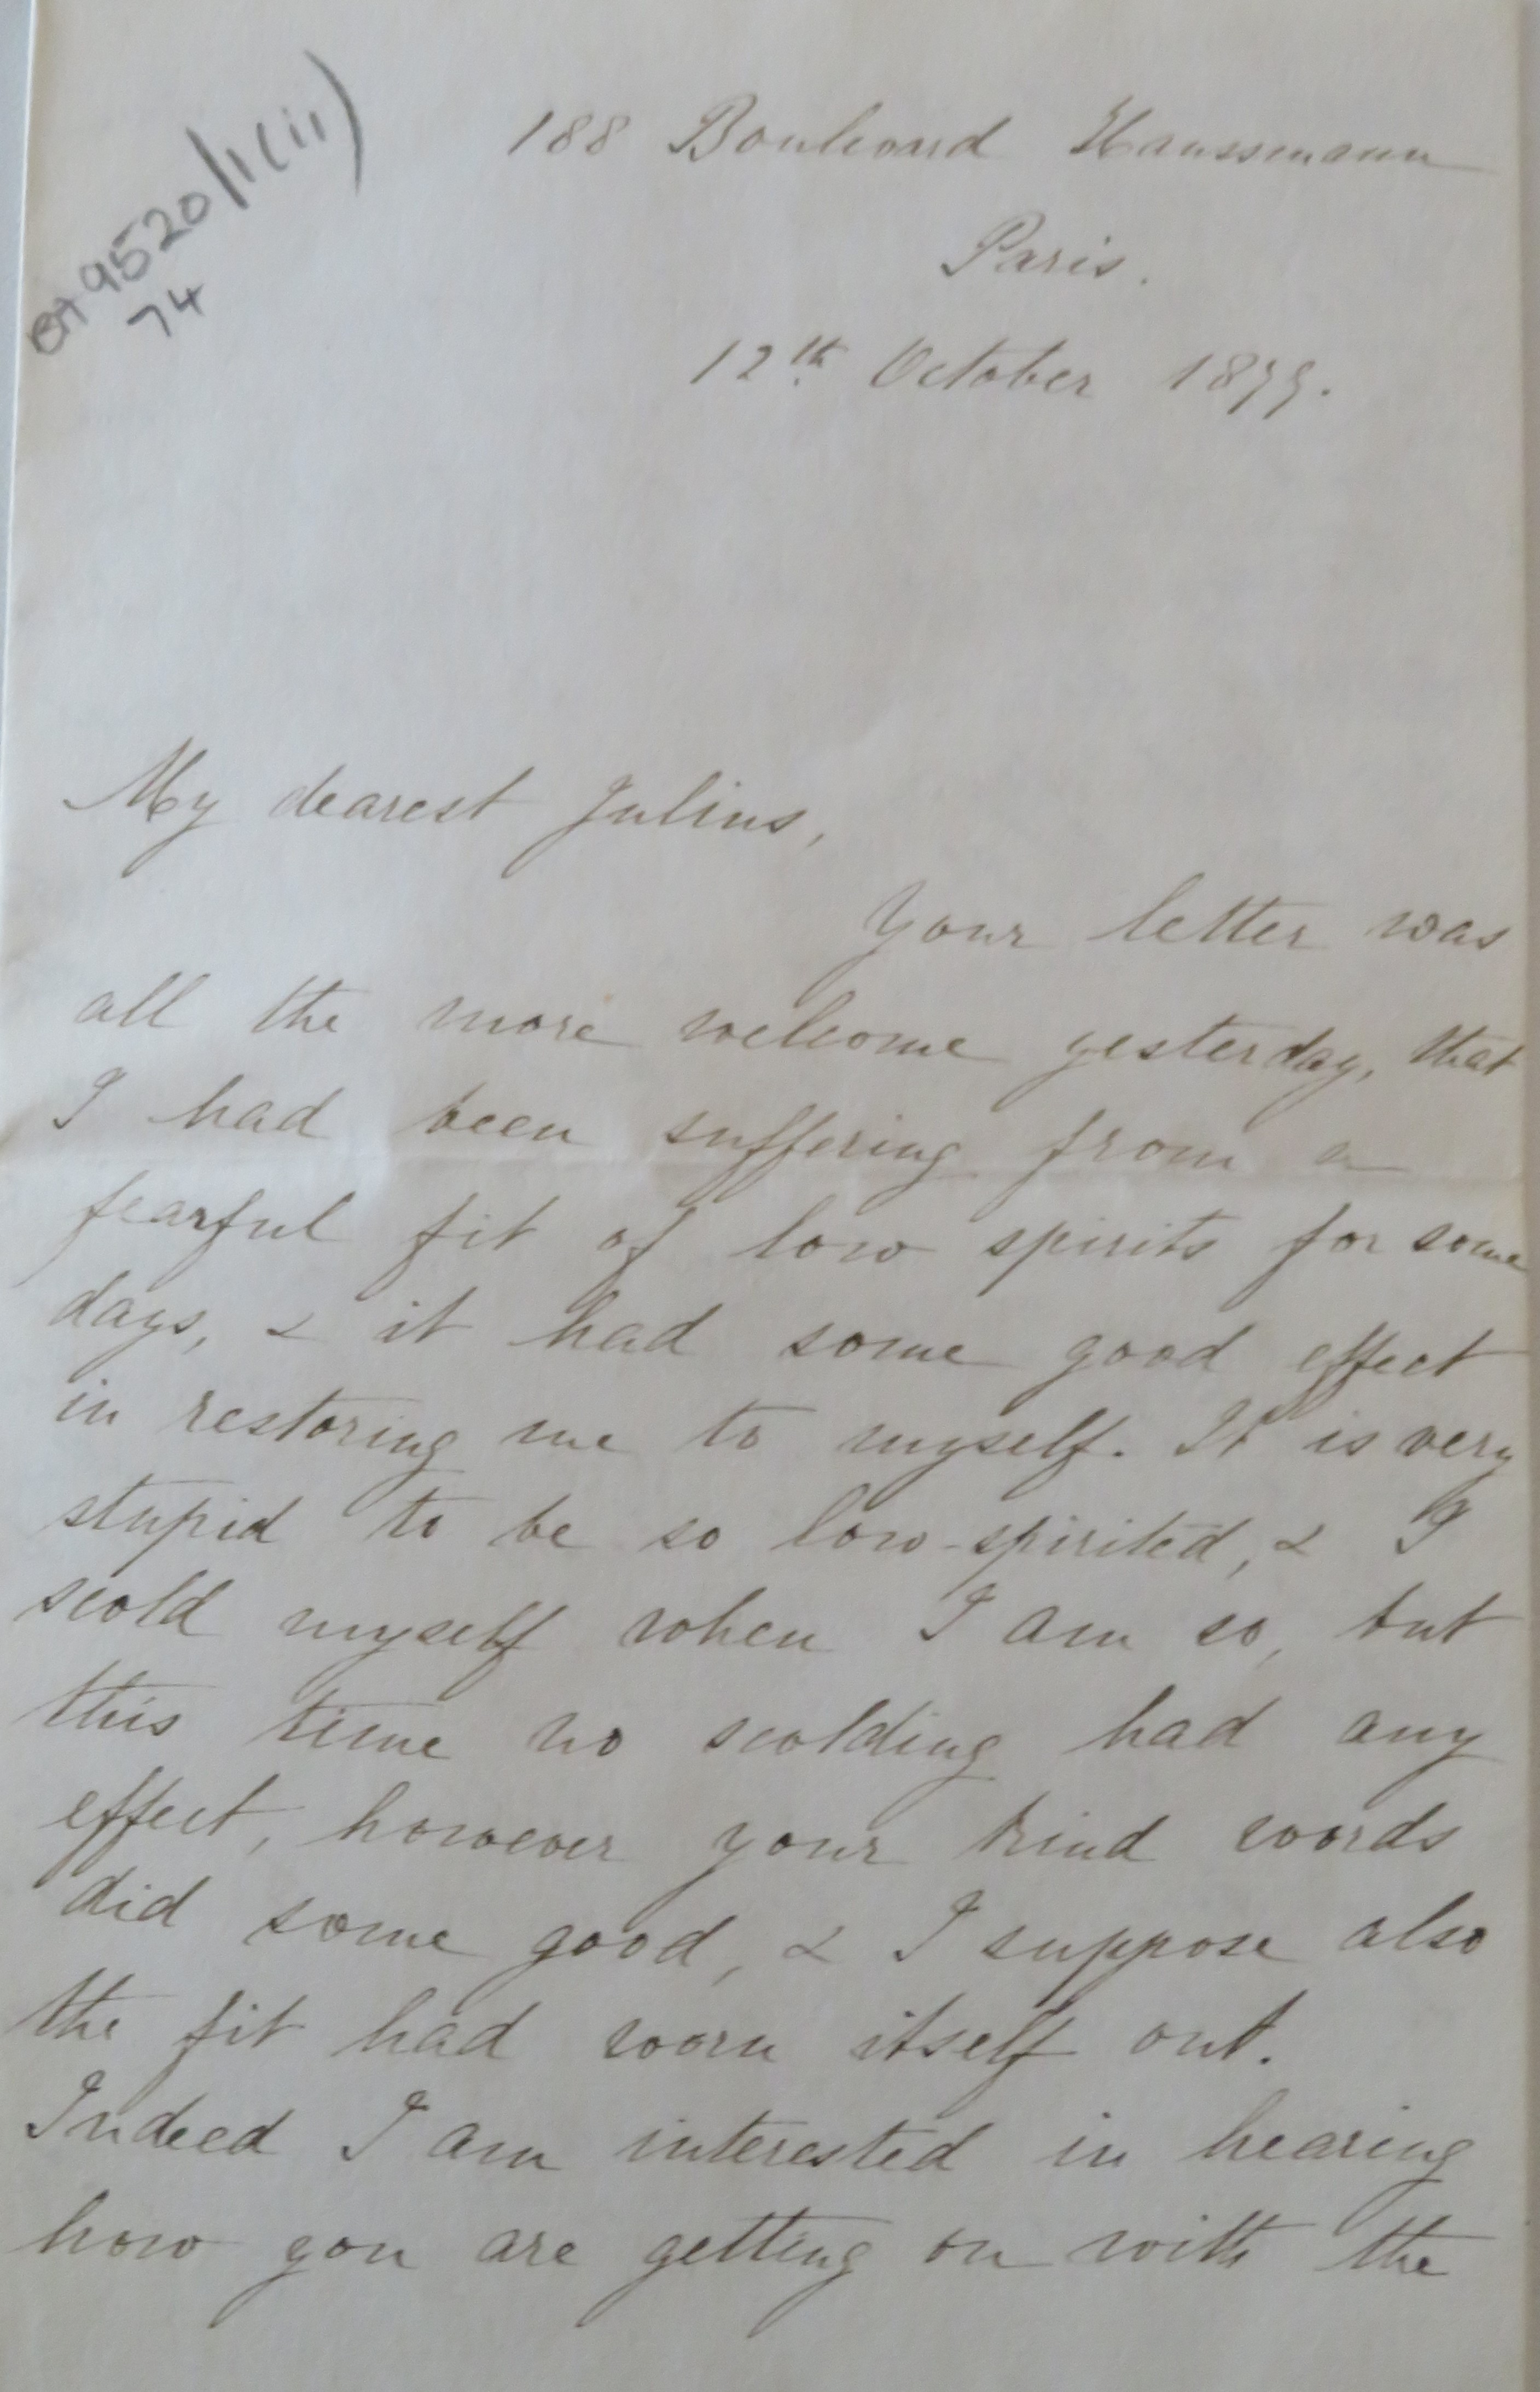 BA 9520/1(ii)
74
188 Boulevard Haussmann
Paris.
12th October 1879.
My dearest Julius,
Your letter was
all the more welcome yesterday, that
I had been suffering from a
fearful fit of low spirits for some
days, & it had some good effect
in restoring me to myself. It is very
stupid to be so low-spirited, & I
scold myself when I am so, but
this time no scolding had any
effect, however your kind words
did some good, & I suppose also
the fit had worn itself out.
Indeed I am interested in hearing
how you are getting on with the